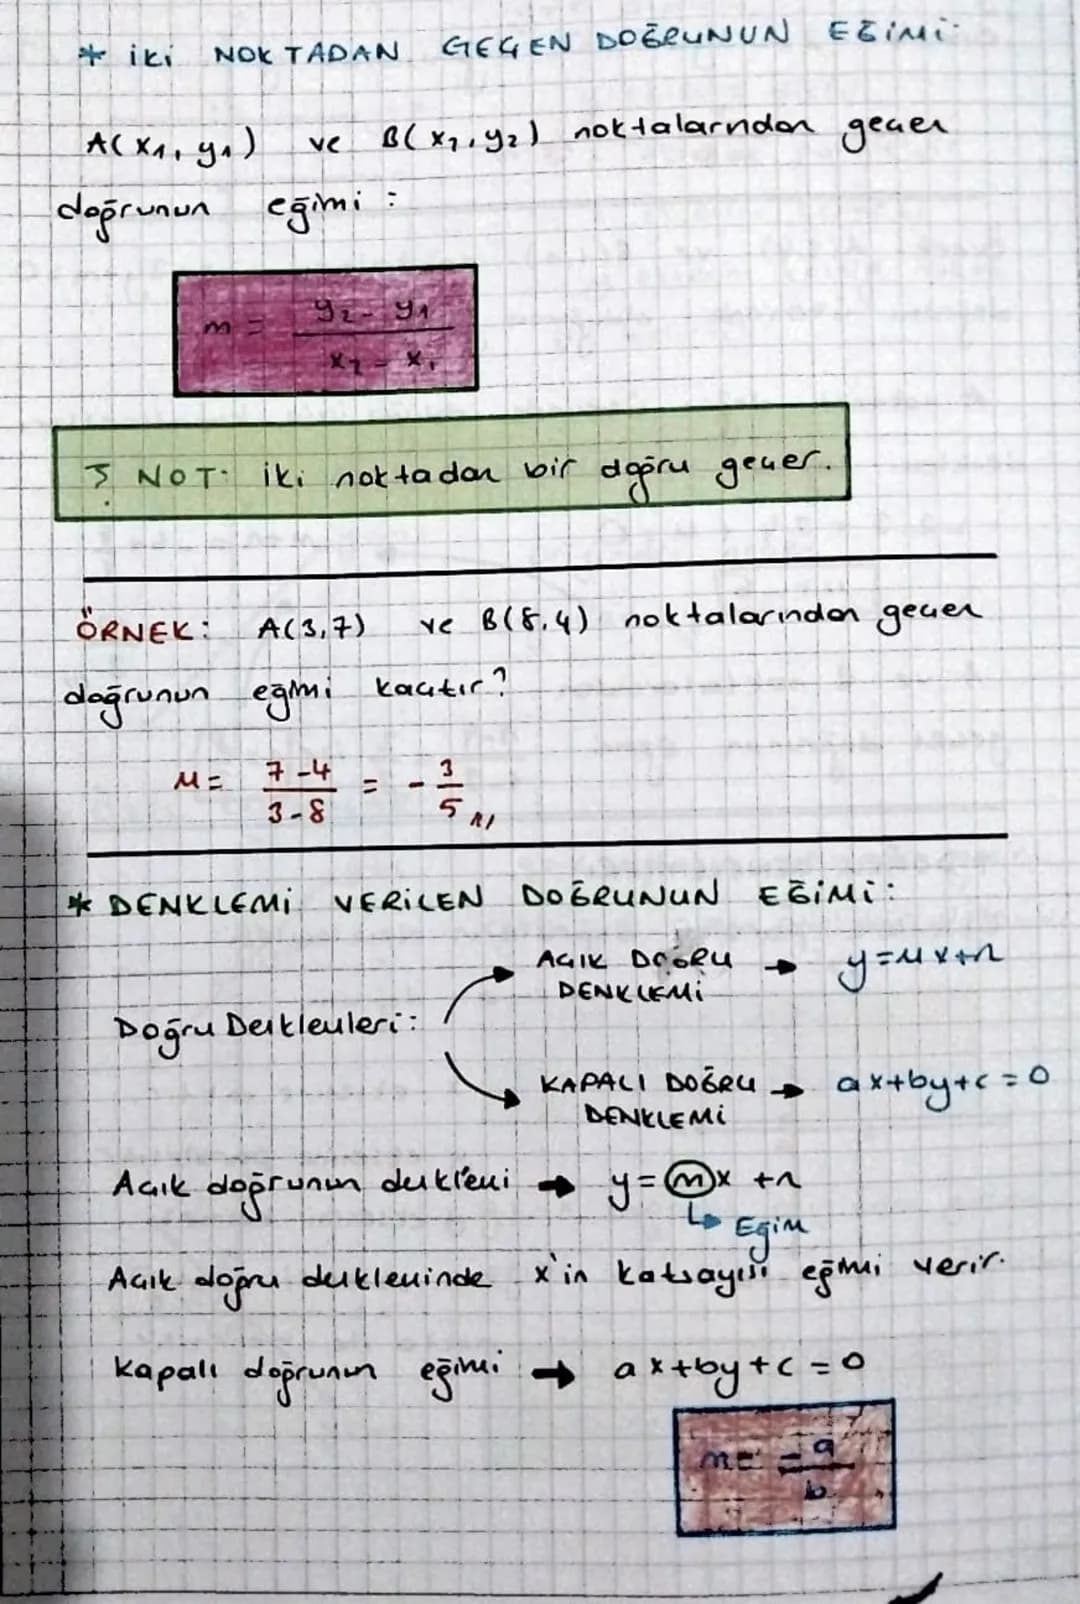 * İKİ NOKTADAN GEÇEN DOĞRUNUN EĞİMİ:
A(x₁, y₁) ve B(x₂, y₂) noktalarından geçen
doğrunun eğimi :
m = y₂ - y₁ / x₂ - x₁
NOT: İki noktadan bir doğru geçer.
ÖRNEK: A(3,7) ve B(8,4) noktalarından geçen
doğrunun eğimi kaçtır?
M = 7-4 / 3-8 = - 3/5 //
* DENKLEMİ VERİLEN DOĞRUNUN EĞİMİ:
Doğru Denklemleri:
AÇIK DOĞRU DENKLEMİ → y=mx+n
KAPALI DOĞRU DENKLEMİ → ax+by+c=0
Açık doğrunun denklemi → y=mx+n
↳ Eğim
Açık doğru denkleminde x'in katsayısı eğimi verir.
Kapalı doğrunun eğimi → ax+by+c=0
m = - a/b